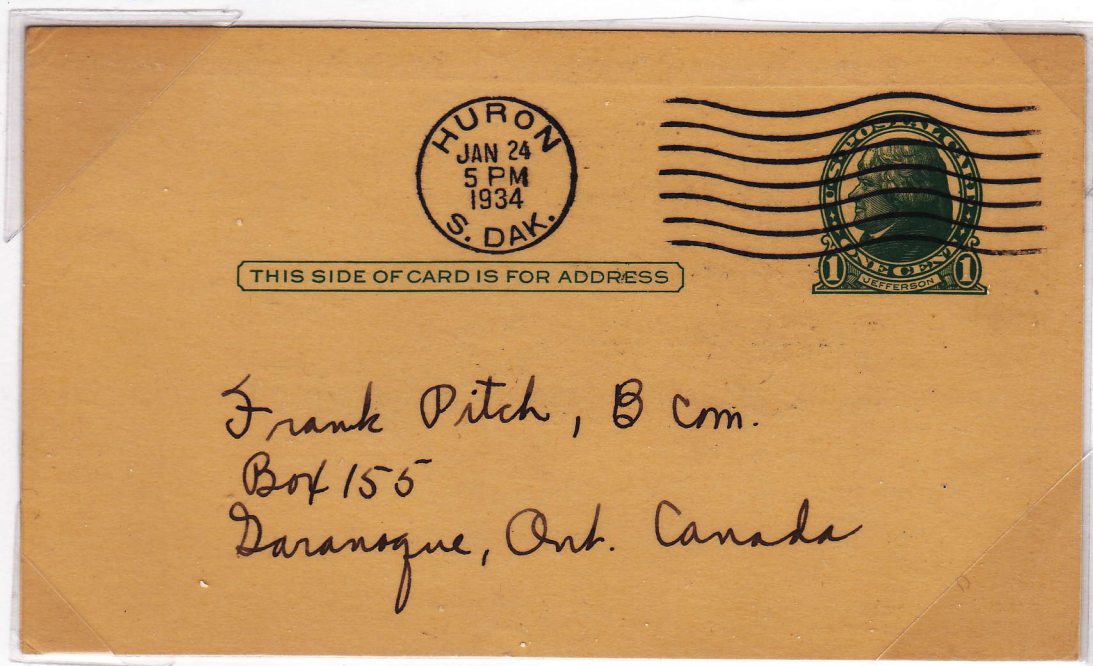 HURON
JAN 24
5 PM
1934
S. DAK.
U.S. POSTAL CARD
ONE CENT
1 JEFFERSON 1
THIS SIDE OF CARD IS FOR ADDRESS
Frank Pitch, B Com.
Box 155
Garanoque, Ont. Canada